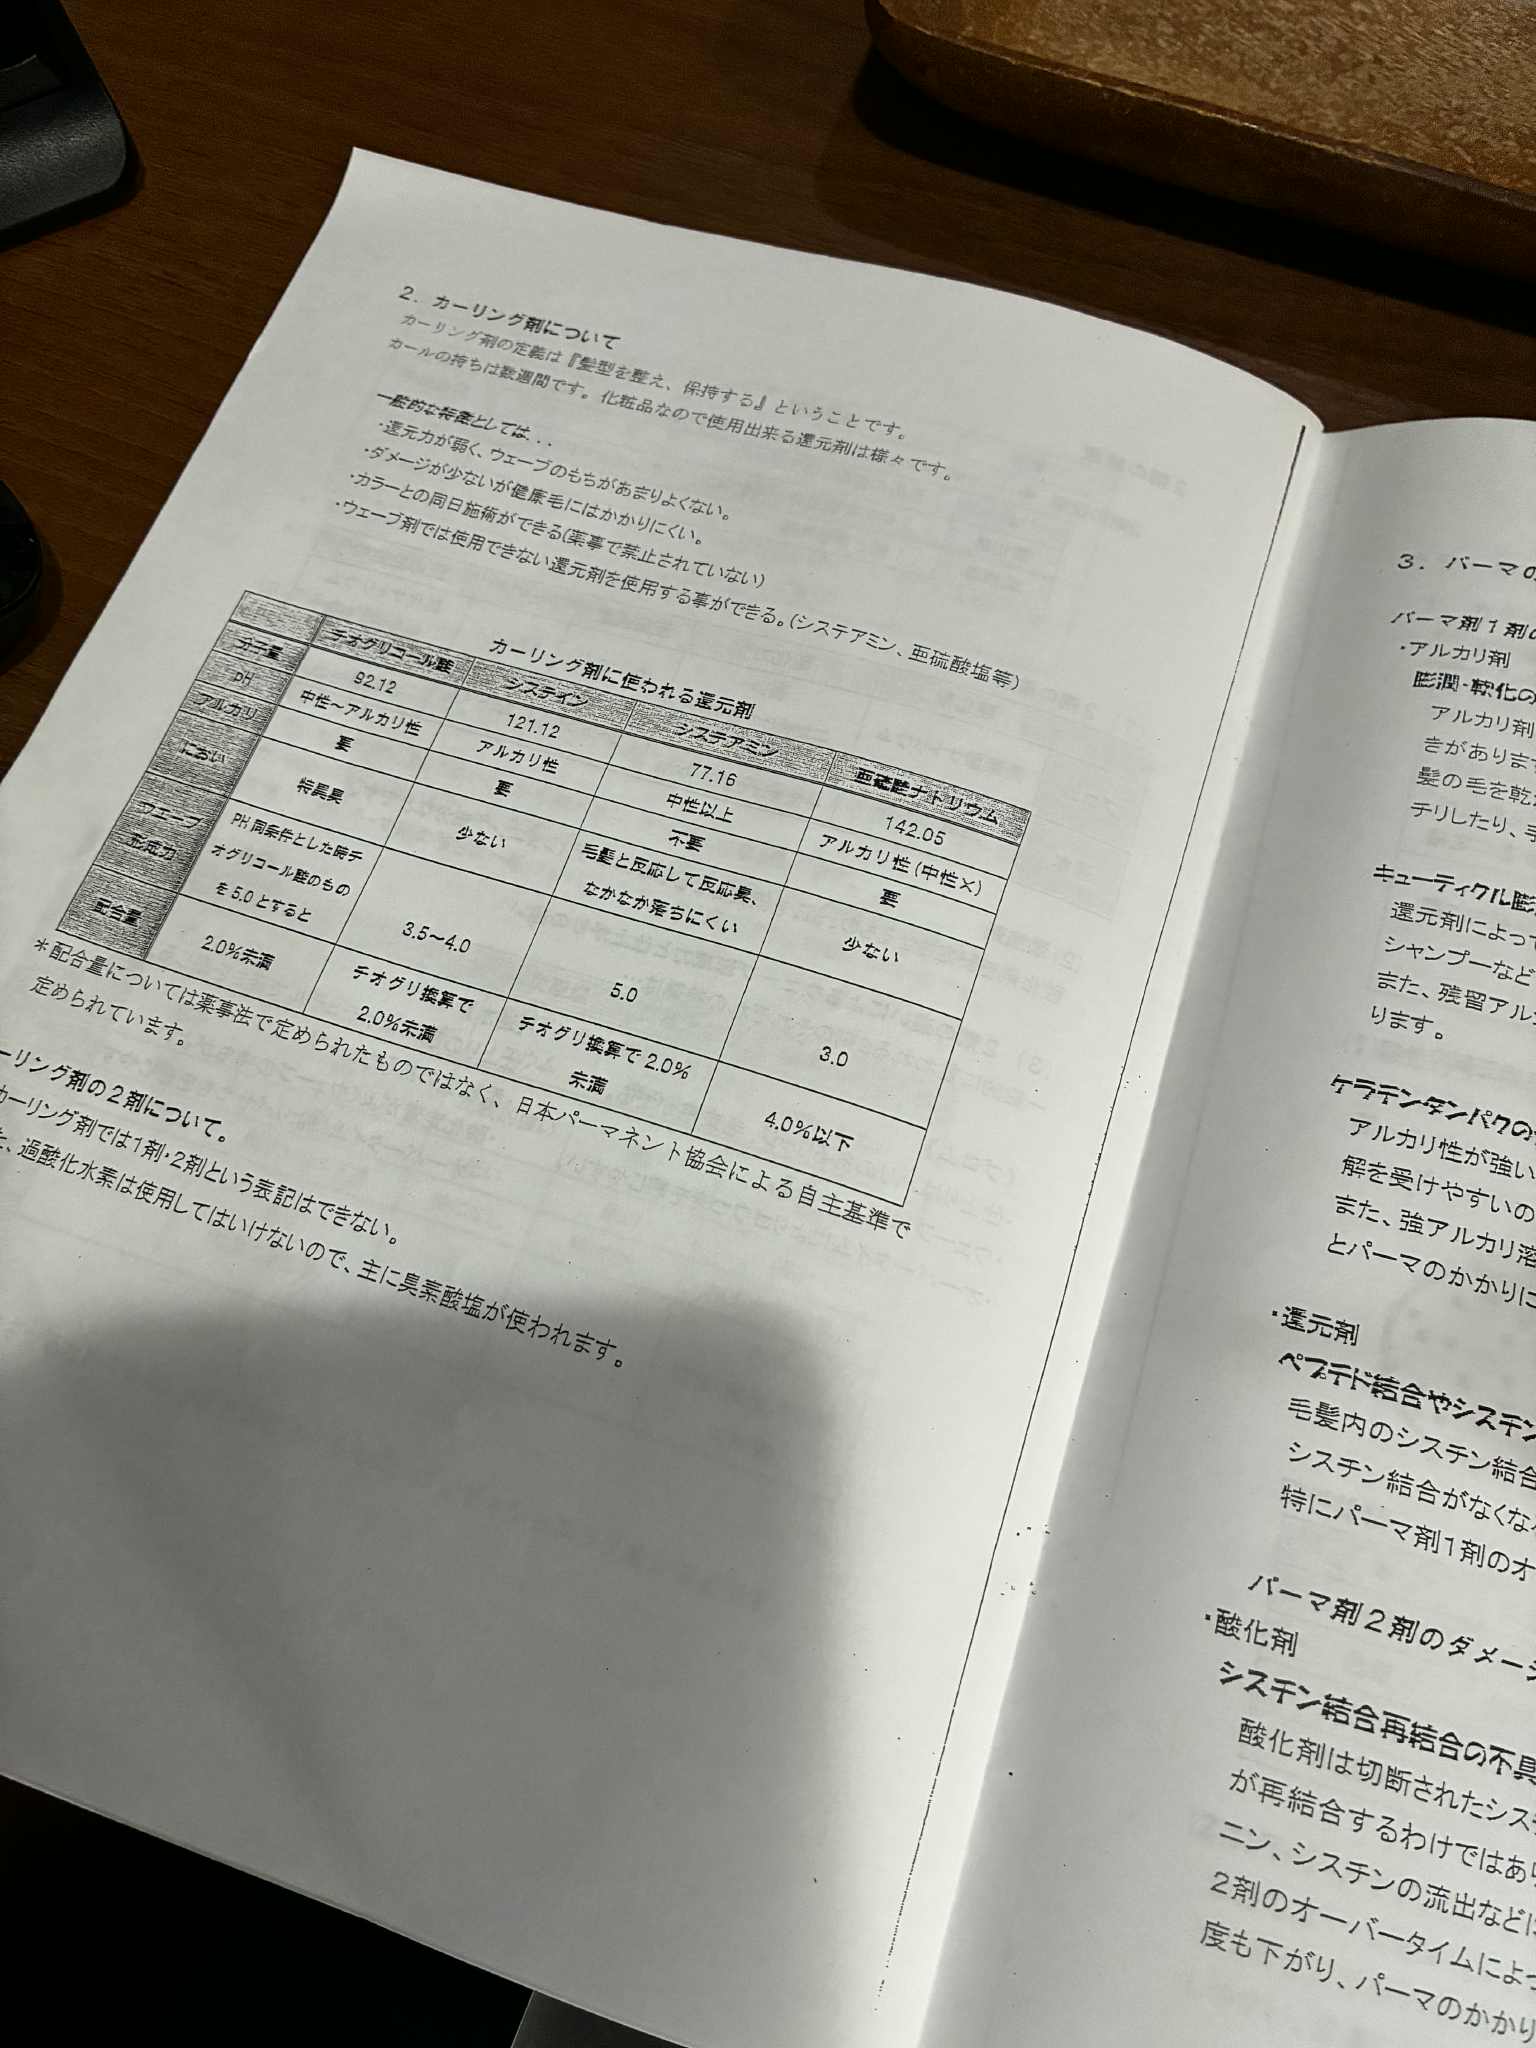 2．カーリング剤について
カーリング剤の定義は『髪型を整え、保持する』ということです。
カールの持ちは数週間です。化粧品なので使用出来る還元剤は様々です。
一般的な特徴としては．．．
・還元力が弱く、ウェーブのもちがあまりよくない。
・ダメージが少ないが健康毛にはかかりにくい。
・カラーとの同日施術ができる(薬事で禁止されていない)
・ウェーブ剤では使用できない還元剤を使用する事ができる。(システアミン、亜硫酸塩等)
カーリング剤に使われる還元剤
チオグリコール酸 システイン システアミン 亜硫酸ナトリウム
分子量 92.12 121.12 77.16 142.05
pH 中性～アルカリ性 アルカリ性 中性以上 アルカリ性(中性×)
アルカリ 要 要 不要 要
におい 特異臭 少ない 毛髪と反応して反応臭、
なかなか落ちにくい 少ない
ウェーブ
形成力 PH同条件とした時チ
オグリコール酸のもの
を5.0とすると 3.5～4.0 5.0 3.0
配合量 2.0%未満 チオグリ換算で
2.0%未満 チオグリ換算で2.0%
未満 4.0%以下
＊配合量については薬事法で定められたものではなく、日本パーマネント協会による自主基準で
定められています。
ーリング剤の2剤について。
カーリング剤では1剤・2剤という表記はできない。
、過酸化水素は使用してはいけないので、主に臭素酸塩が使われます。
3．パーマの
パーマ剤1剤の
・アルカリ剤
膨潤・軟化の
アルカリ剤
きがあります
髪の毛を乾
チリしたり、手
キューティクル膨
還元剤によって
シャンプーなど
また、残留アル
ります。
ケラチンタンパクの
アルカリ性が強い
解を受けやすいの
また、強アルカリ溶
とパーマのかかりに
・還元剤
ペプチド結合やシスチン
毛髪内のシスチン結合
シスチン結合がなくな
特にパーマ剤1剤のオ
パーマ剤2剤のダメージ
・酸化剤
シスチン結合再結合の不具
酸化剤は切断されたシス
が再結合するわけではあ
ニン、シスチンの流出などに
2剤のオーバータイムによっ
度も下がり、パーマのかかり